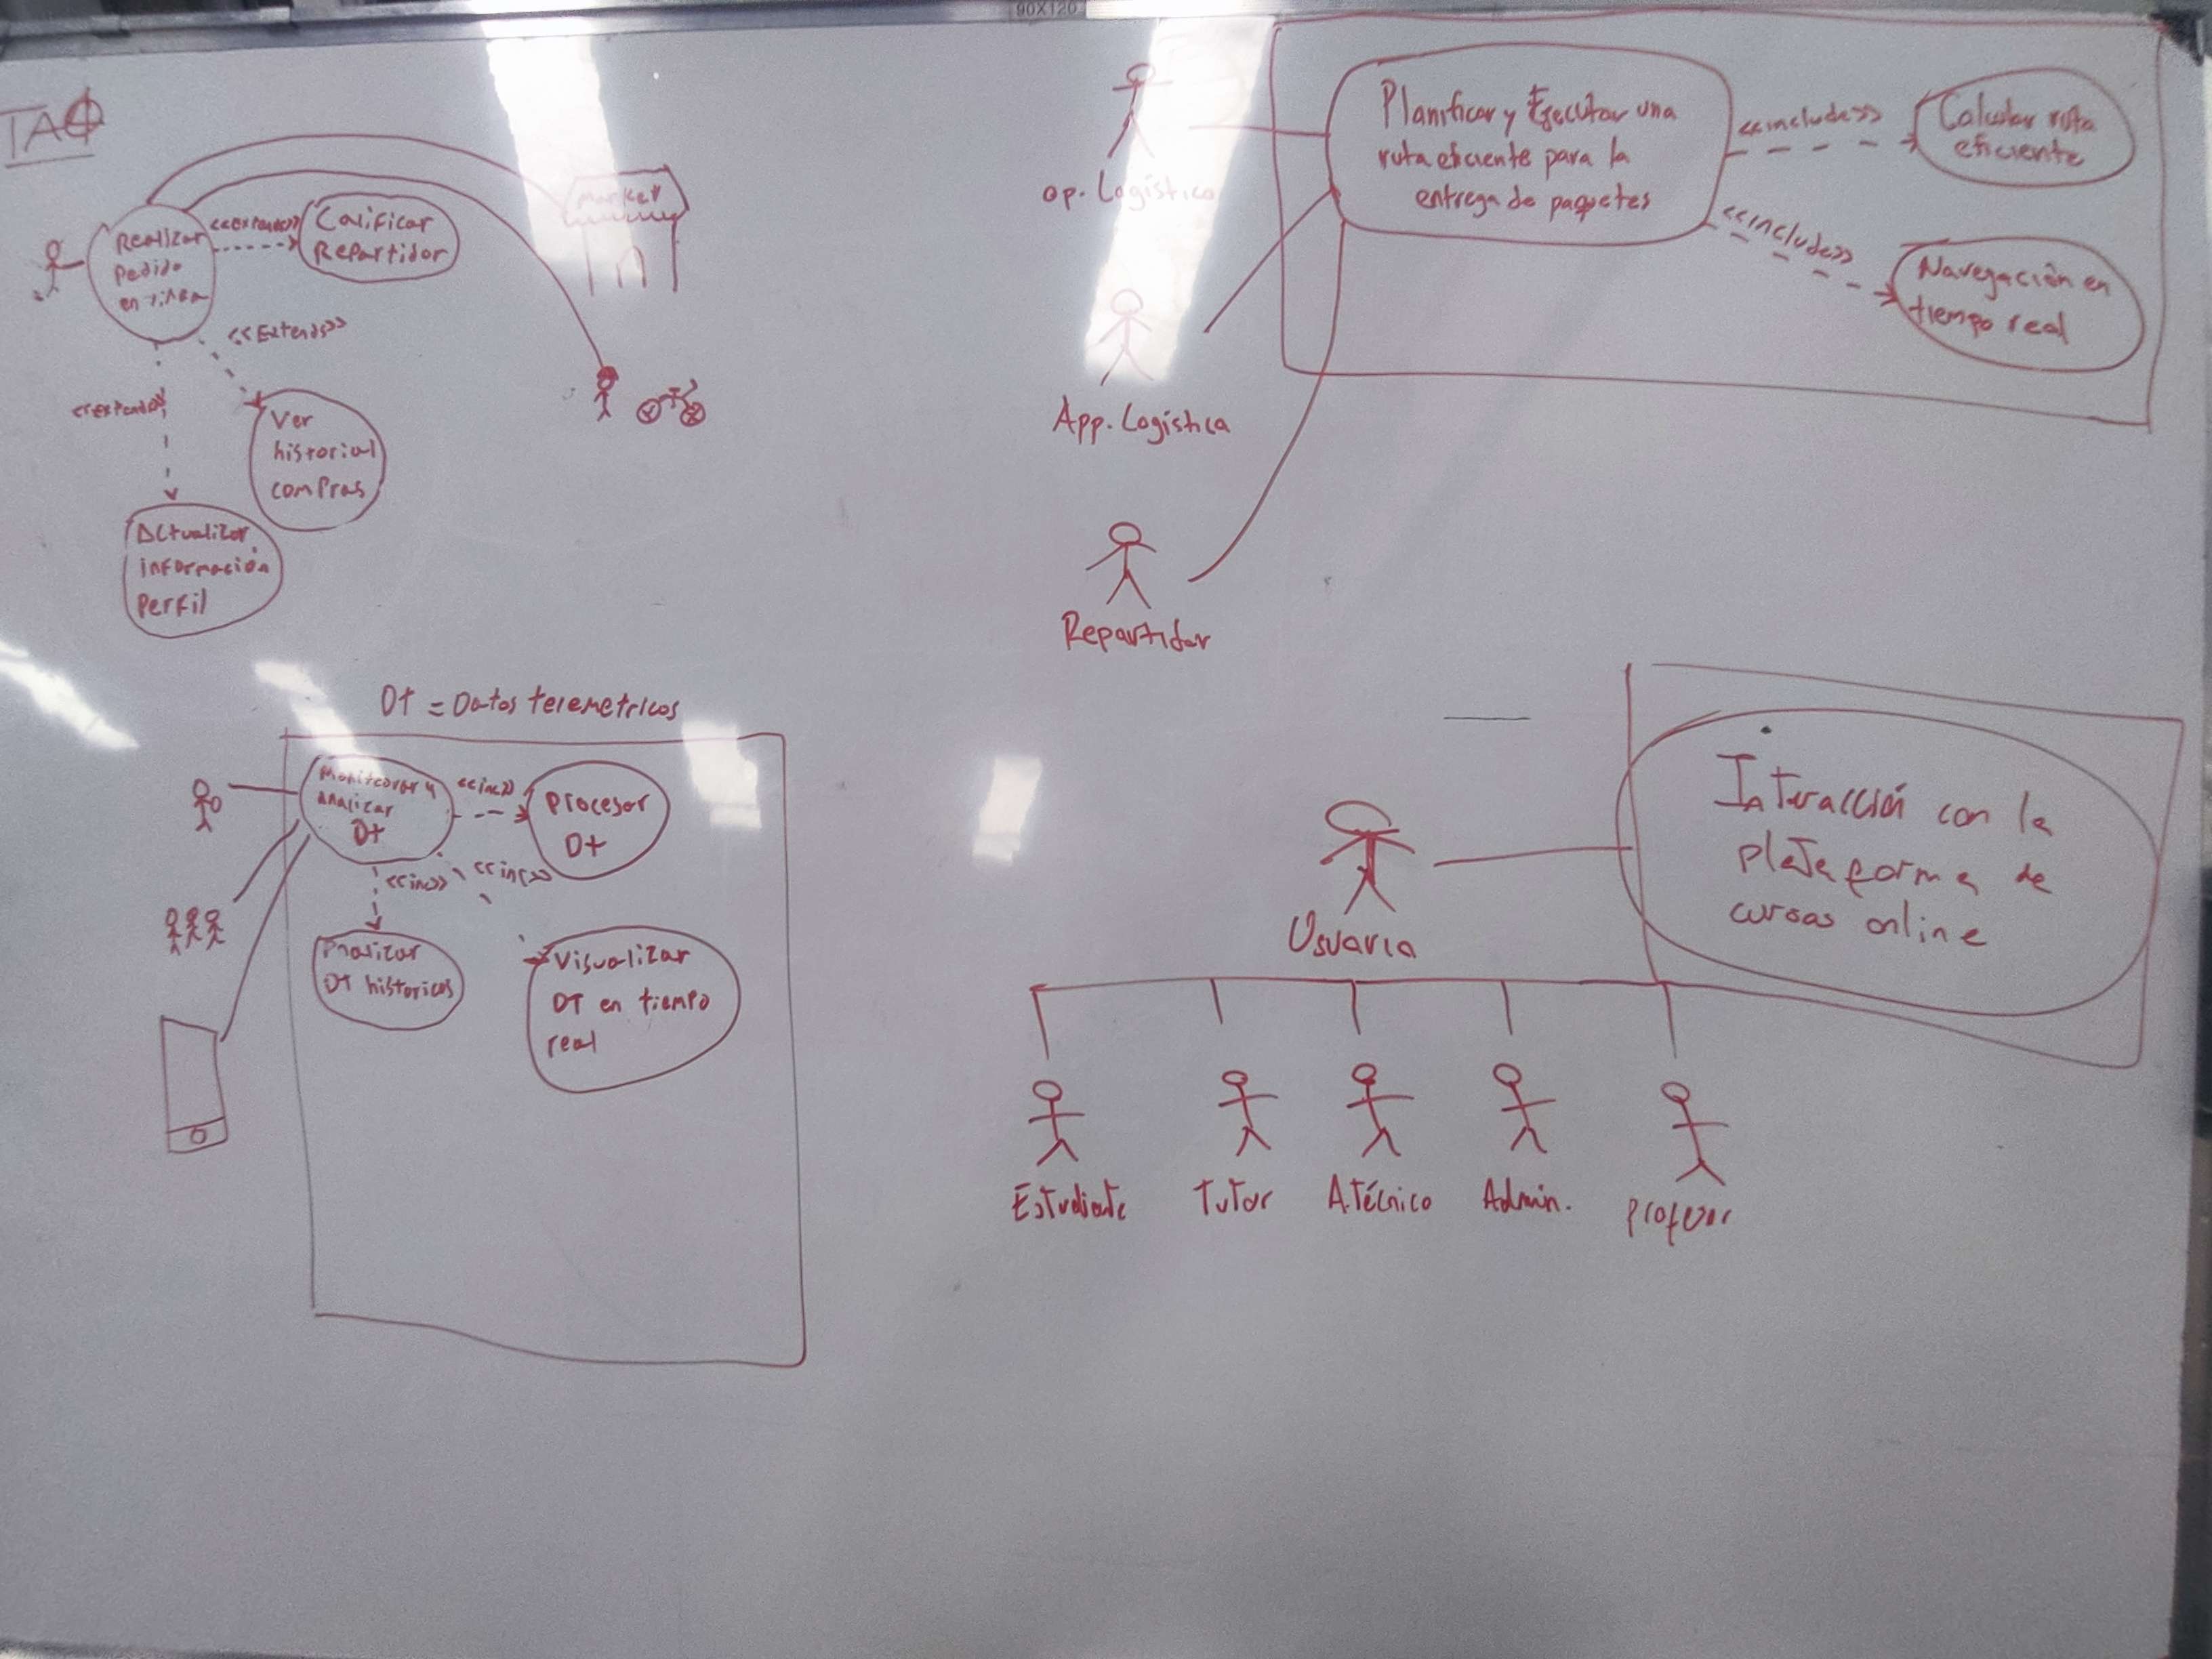 90X120
TAO
Realizar
Pedido
en linea
<<extends>>
Calificar
Repartidor
market
<<Extends>>
Ver
historial
comPras
<<extends>>
Actualizar
informacion
Perfil
op. Logístico
App. Logística
Repartidor
Planificar y Ejecutar una
ruta eficiente para la
entrega de paquetes
<<includes>>
Calcular ruta
eficiente
<<includes>>
Navegación en
tiempo real
Dt = Datos telemetricos
Monitorear y
analizar
Dt
<<inc>>
Procesar
Dt
<<inc>>
<<inc>>
Analizar
DT historicos
Visualizar
DT en tiempo
real
Usuario
Interacción con la
plataforma de
cursos online
Estudiante
Tutor
A.Técnico
Admin.
Profesor